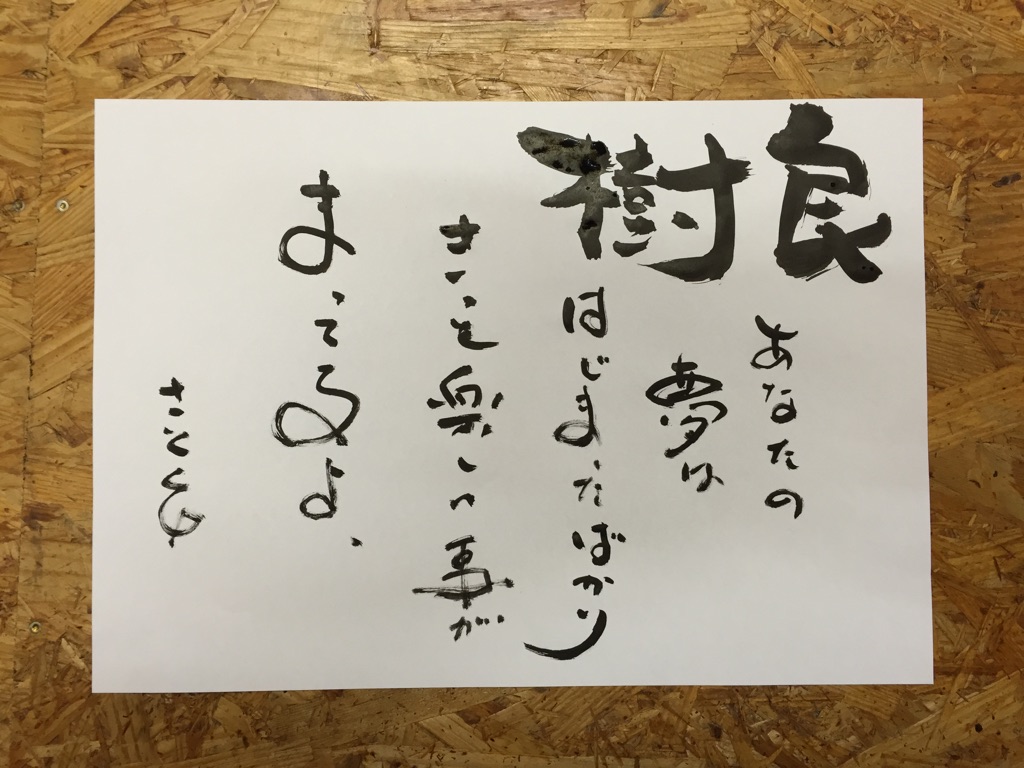 良樹
あなたの
夢は
はじまったばかり
きっと楽しい事が
まってるよ、